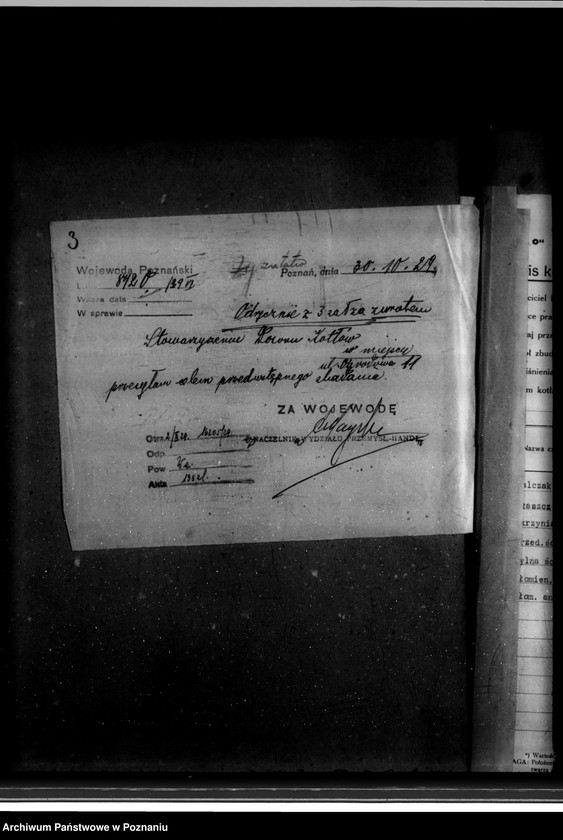 3
Wojewoda Poznański
L. 8420 /29 VI
Wasza data
W sprawie
Poznań, dnia 30. 10. 29.
Odręcznie z 3 zał za zwrotem
Stowarzyszeniu Dozoru Kotłów
w miejscu
ul. Ogrodowa 11
przesyłam celem przedwstępnego zbadania.
ZA WOJEWODĘ
NACZELNIK WYDZIAŁU PRZEMYSŁ.-HANDL.
Otrz.
Odp
Pow
Akta
is k
ciciel
ce pra
aj prze
ol zbud
iśnieni
m kotł
Nazwa cz
lczak
taszcz
krzynia
rzed.śc
ylna śc
łomien.
łom. an
*) Wartoś
AGA: Położen
Archiwum Państwowe w Poznaniu